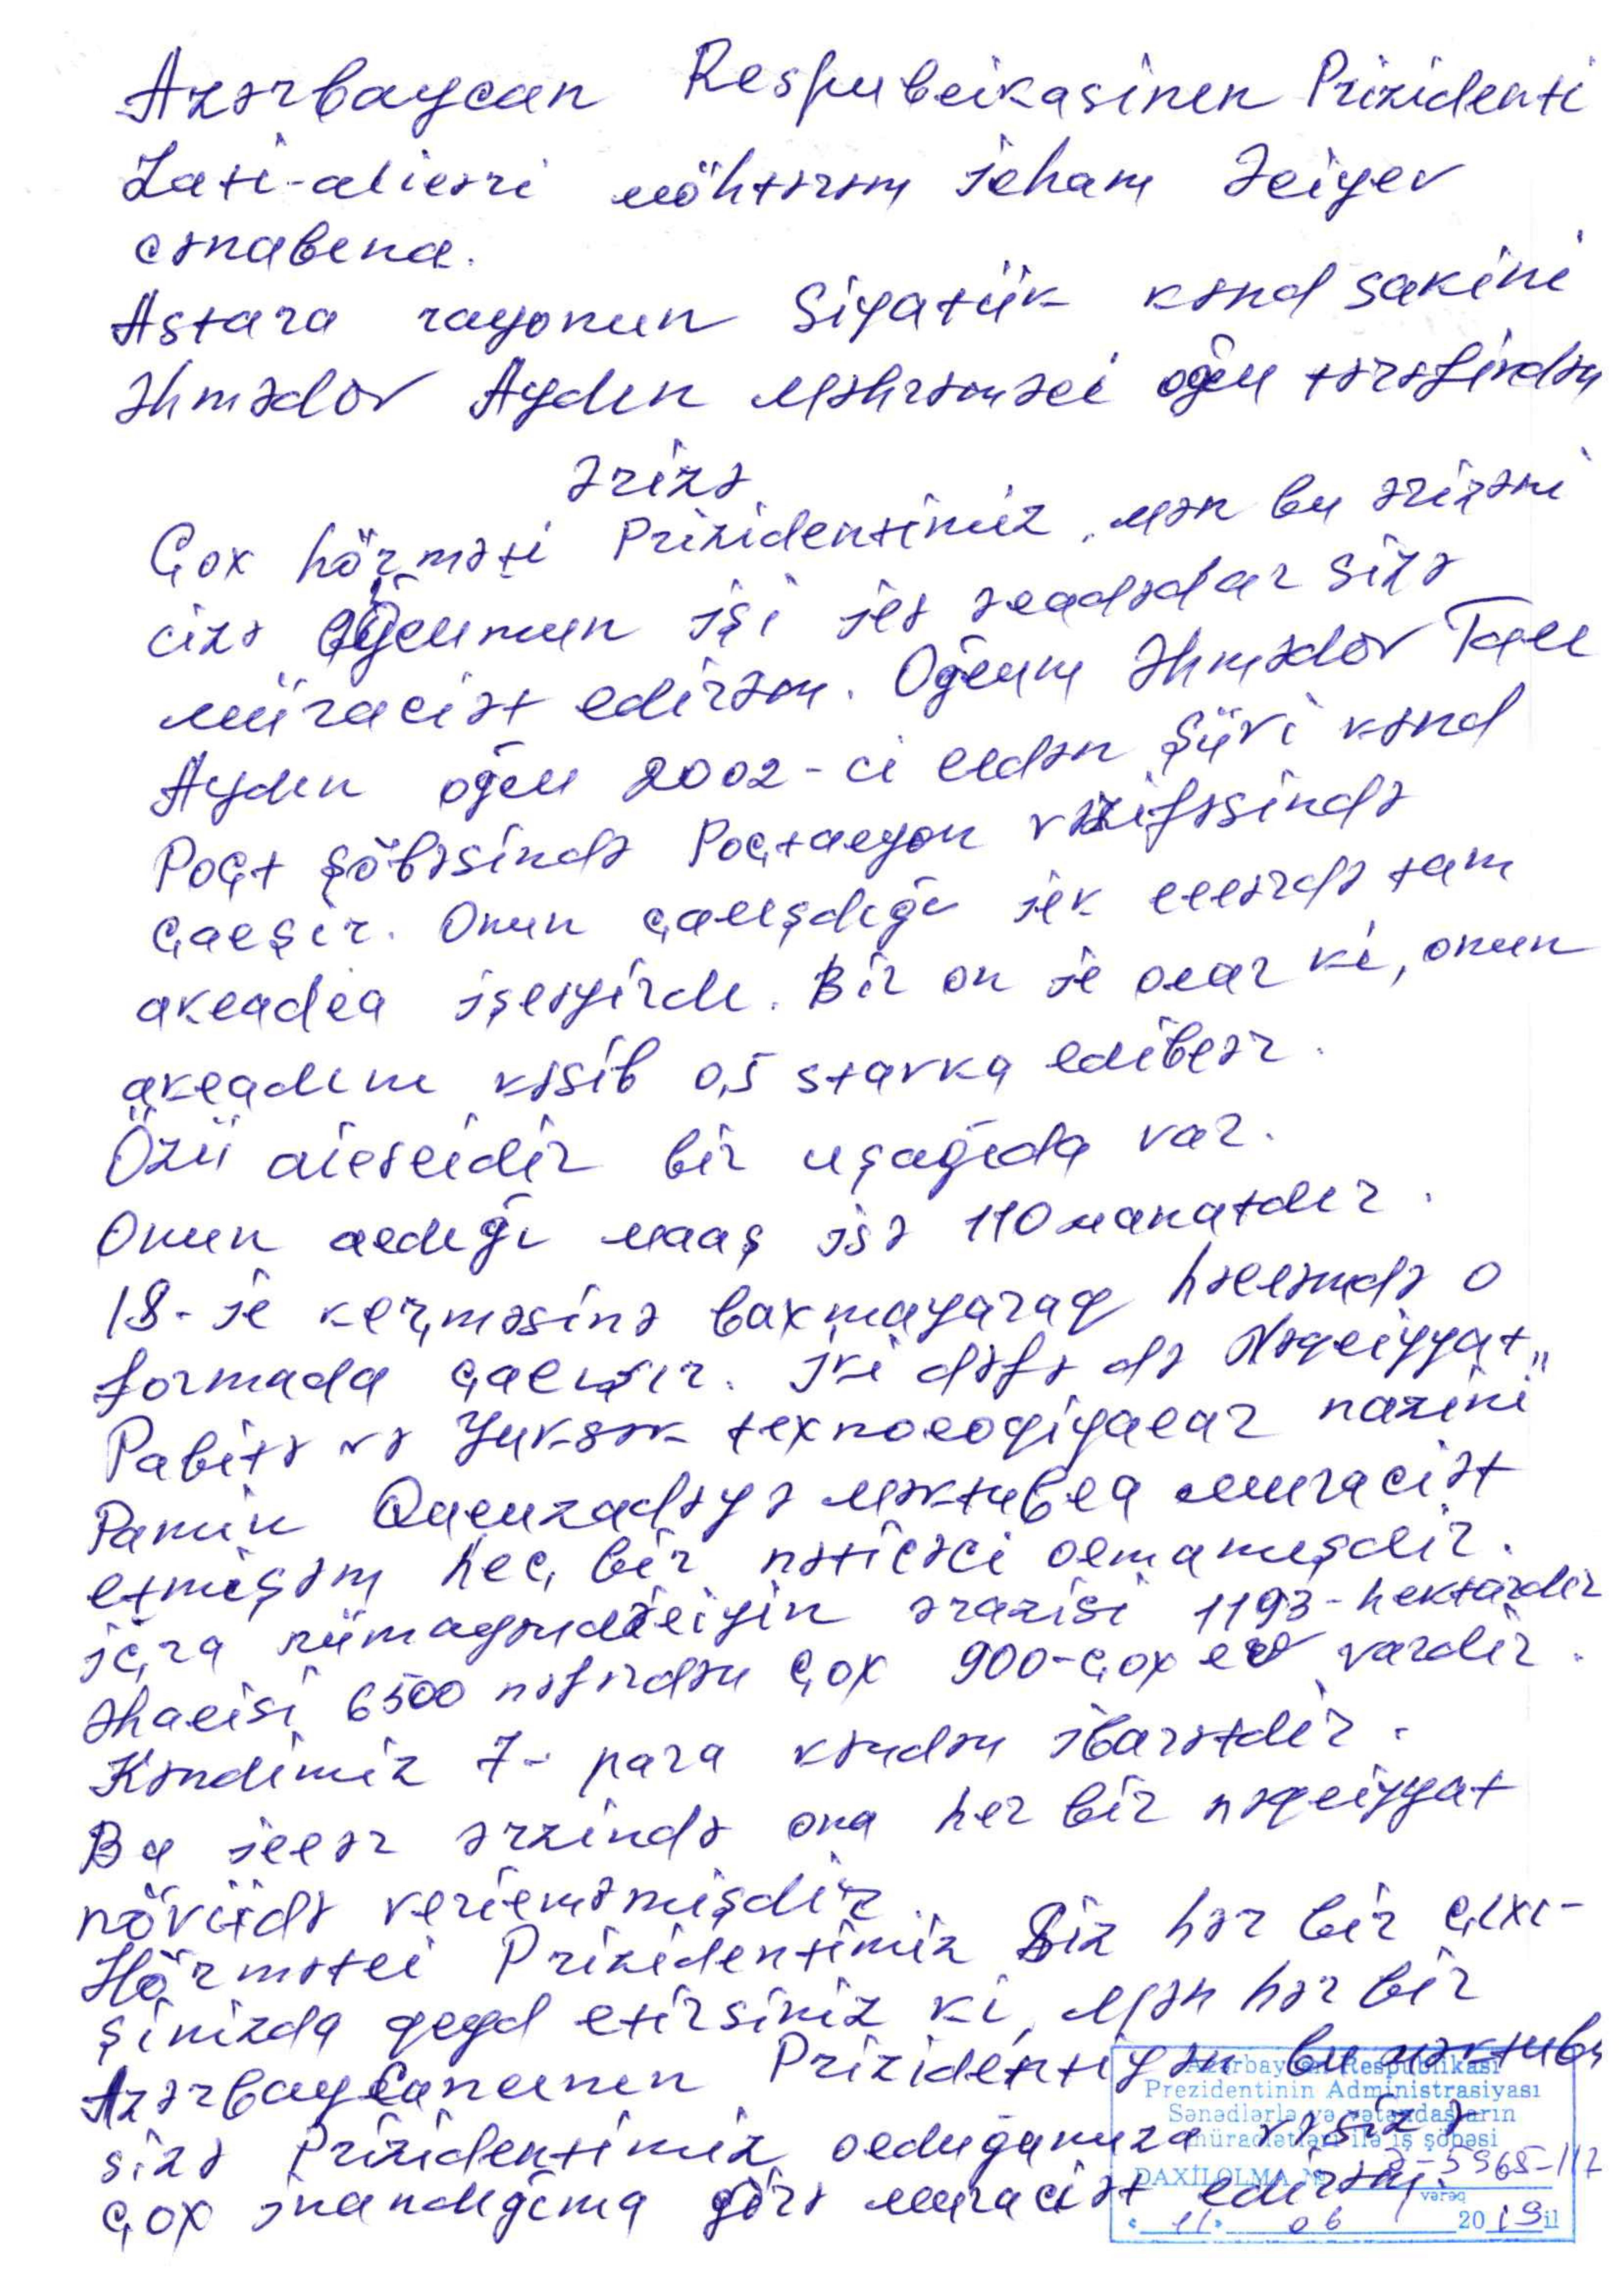 Azərbaycan Respublikasinin Prizidenti
Zati-aliləri möhtərəm İlham Əliyev
cənabına.
Astara rayonun Siyatük kənd sakini
Əhmədov Aydın Məhrəməli oğlu tərəfindən
Ərizə
Çox hörməti Prizidentimiz, mən bu ərizəni
cizə oğlumun işi ilə əladədar sizə
müraciət edirəm. Oğlum Əhmədov
Aydın oğlu 2002-ci ildən Şüvi kənd
Poçt şöbəsində Poçtalyon vəzifəsində
çalşır. Onun çalışdığı ilk illərdə tam
akladla işləyirdi. Bir on il olar ki, onun
akladını kəsib 0,5 stavka ediblər.
Özü ailəlidir bir uşağıda var.
Onun aldığı maaş isə 110 manatdır.
18-il keçməsinə baxmayaraq həlləmdə o
formada çalışır. İki dəfə də Nəqliyyat,
Pabitə və Yuksək texnologiyalar naziri
Pamin Quluzadəyə məktubla muraciət
etmişəm heç bir nəticəci olmamışdır.
İcra nümayəndəliyin ərazisi 1193-hektardır
Əhalisi 6500 nəfərdən çox 900-çox ev vardır.
Kəndimiz 7- para kəndən ibarətdir.
Bu illər ərzində ona her bir nəqliyyat
növüdə verilməmişdir.
Hörmətli Prizidentimiz Siz hər bir çıxı-
şınızda qeyd etirsiniz ki, Mən hər bir
Azərbaycanının Prizidentiyəm bu məktubu
sizə Prizidentimiz olduğunuza və sizə
çox inandığıma görə muraciət edirəm.
Azərbaycan Respublikası
Prezidentinin Administrasiyası
Sənədlərlə və vətəndaşların
müraciətləri ilə iş şöbəsi
DAXİLOLMA №
vərəq
« 11 » 06 2019 il